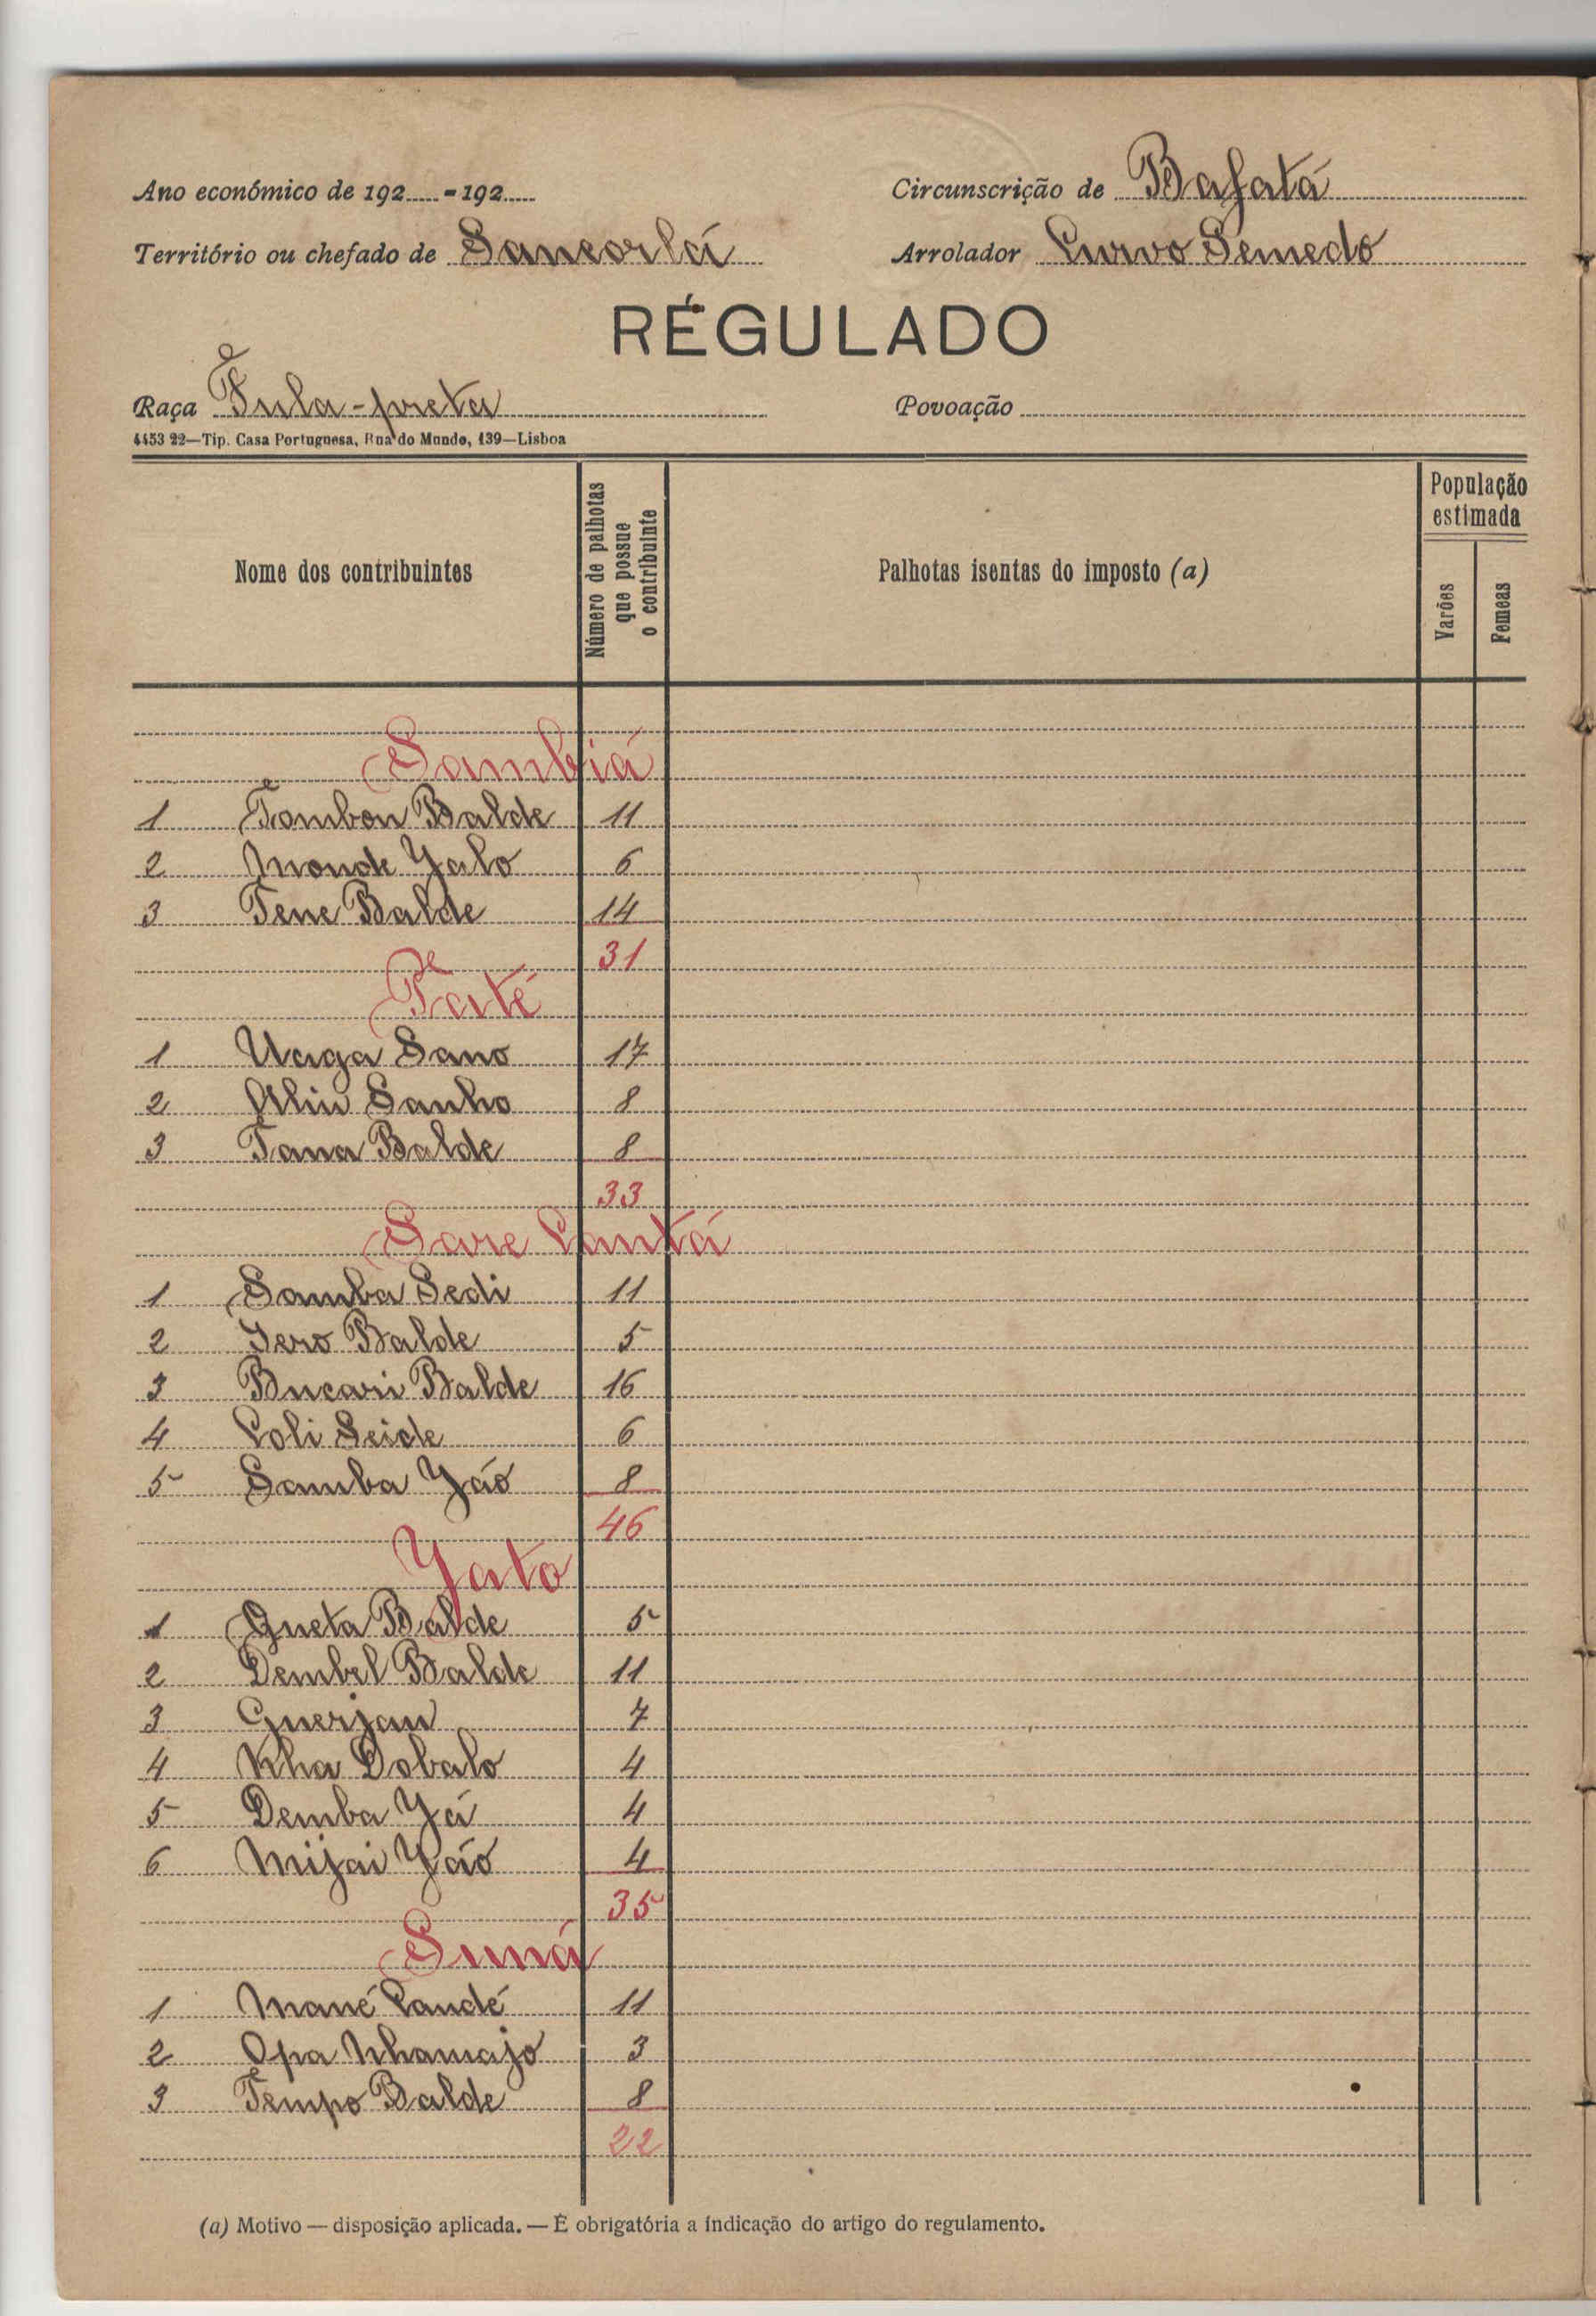 Ano económico de 192.....-192.....
Circunscrição de Bafatá
Território ou chefado de Sancorlá
Arrolador Curvo Semedo
RÉGULADO
Raça Fula-preta
Povoação
4453 22—Tip. Casa Portuguesa, Rua do Mundo, 139—Lisboa
Nome dos contribuintes
Número de palhotas que possue o contribuinte
Palhotas isentas do imposto (a)
População estimada
Varões
Femeas
Sambiá
1 Tombon Balde 11
2 Monde Yalo 6
3 Tene Balde 14
31
Taté
1 Uaga Sano 17
2 Aliu Sanho 8
3 Tana Balde 8
33
Sare Cantá
1 Samba Sedi 11
2 Iero Balde 5
3 Bucari Balde 16
4 Coli Seide 6
5 Samba Yáo 8
46
Yato
1 Gueta Balde 5
2 Dembel Balde 11
3 Guerjan 7
4 Kha Dobalo 4
5 Demba Yá 4
6 Mijai Yáo 4
35
Suná
1 Mané Candé 11
2 Opa Nhamajo 3
3 Tempo Balde 8
22
(a) Motivo — disposição aplicada. — É obrigatória a indicação do artigo do regulamento.